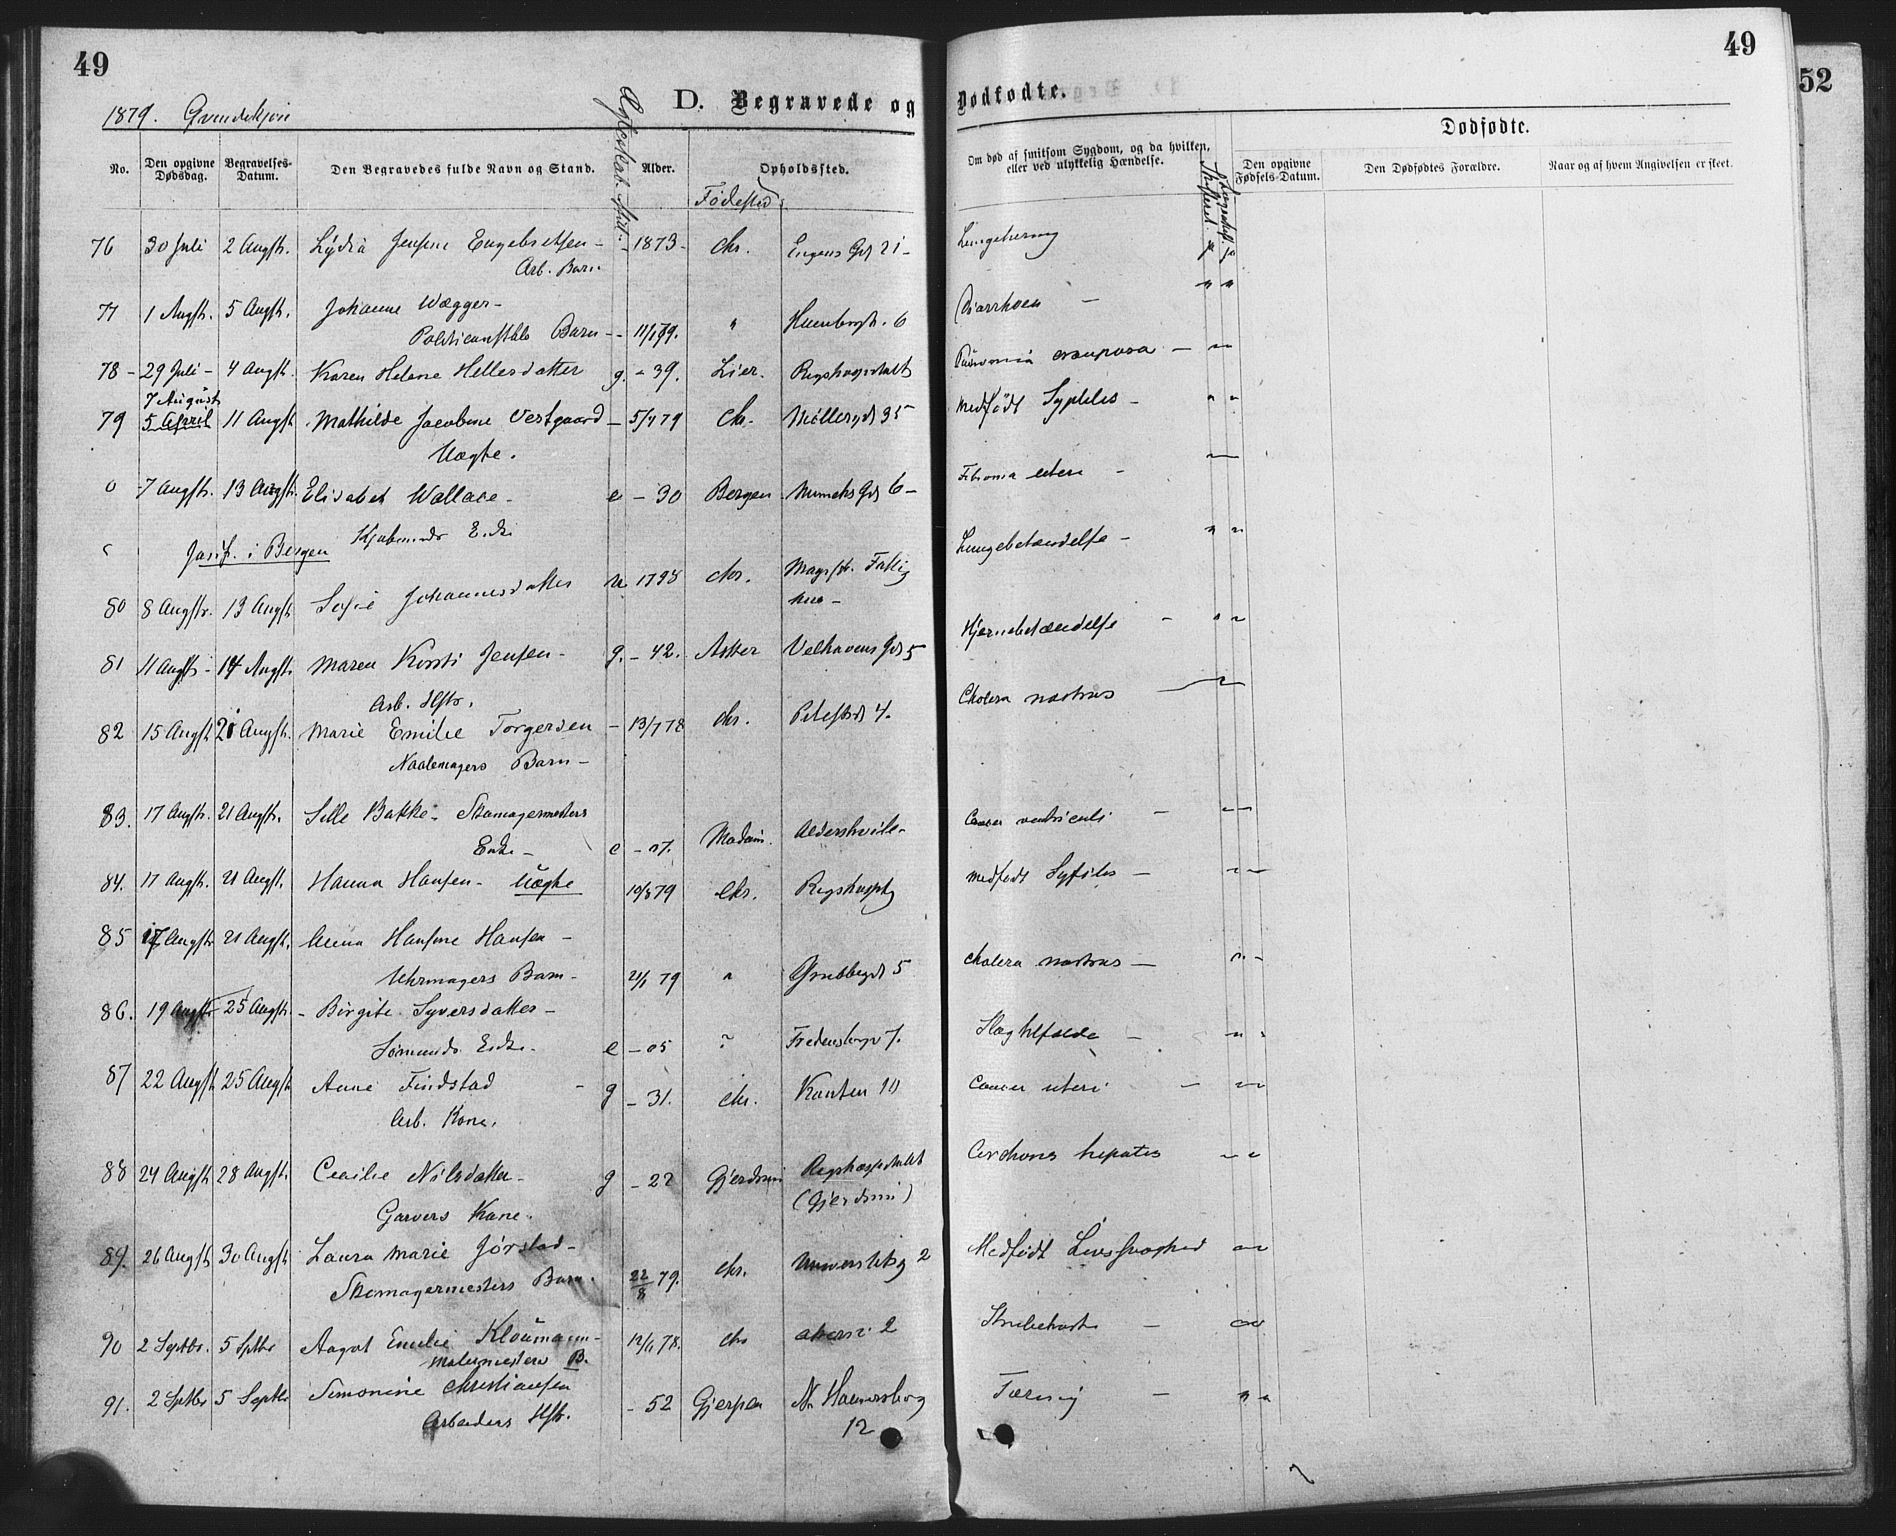 49
49
52
1879. Qvindekjøn
D. Begravede og Dødfødte.
Dødfødte.
No.
Den opgivne Dødsdag.
Begravelses-Datum.
Den Begravedes fulde Navn og Stand.
Alder.
Opholdssted.
Fødested
Om død af smitsom Sygdom, og da hvilken, eller ved ulykkelig Hændelse.
Den opgivne Fødsels-Datum.
Den Dødfødtes Forældre.
Naar og af hvem Angivelsen er skeet.
76 30 Juli 2 Augst. Lydia Jensine Engebretsen - 1873 - Chr. Engens Gd 21 - Lungetæring
Arb. Barn
77 1 Augst. 5 Augst. Johanne Wægger - Diarrhoea -
Politiconstbls Barn - 11/1 79. " 6
78 - 29 Juli - 4 Augst. Karen Helene Hellesdatter g. - 39. Lier. Rigshospitalet crouposa -
7 August
79 5 April 11 Augst. Mathilde Jacobine Vestgaard - 5/4 79 Chr. Møllergd 35 Medfødt Syphilis -
Uægte.
0 7 Augst. 13 Augst. Elisabet Wallace - e - 30 Bergen Munchs Gd 6 - Fibroma uteri -
Kjøbmands Enke
Jasif. i Bergen
80 8 Augst. 13 Augst. Sofie Johannesdatter u 1798 Chr. Magist. Fattig Lungebetændelse -
hus -
81 11 Augst - 14 Augst. Maren Kirsti Jensen - g. - 42. Asker Velhavens Gd 5 Hjernebetændelse -
Arb. Hstr.
82 15 Augst 21 Augst. Marie Emilie Torgersen - 13/7 78 Chr. Pilestrd 4. Cholera nostras
Naalemagers Barn -
83. 17 Augst. 21 Augst. Sille Bakke - Skomagermesters Cancer ventriculi -
Enke - e - 07. Modum. Aldershvile -
84. 17 Augst. 21 Augst. Hanna Hansen - Uægte 10/8 79 Chr. Rigshosptg Medfødt Syfilis -
85 17 Augst 21 Augst. Anna Hansine Hansen - Cholera nostras -
Uhrmagers Barn - 21/1 79 " Grubbegd 5
86. 19 Augst 25 Augst. - Birgite Syversdatter - Slagtilfælde -
Sømands Enke - e - 05 ? Fredensborgv 7.
87 22 Augst 25 Augst Anne Findstad - g - 31. Chr. Kanten 10 Cancer uteri -
Arb. Kone.
88 24 Augst 28 Augst. Cecilie Nilsdatter - g - 22 Gjerdrum Rigshospitalet Cirrhosis hepatis
Garvers Kone. (Gjerdrum)
89. 26 Augst 30 Augst Laura Marie Jørstad - Medfødt Livssvaghed
Skomagermesters Barn. 22/8 79. Chr. Universitetsg 2
90 2 Septbr. 5 Sptbr Aagot Emilie Kloumann - 12/1 78. Chr Akersv. 2 Strubehoste -
Malermesters B.
91. 2 Sptbr 5 Septbr Simonine Christiansen - 52 Gjerpen N. Hammersborg Tæring -
Arbeiders Hstr. 12